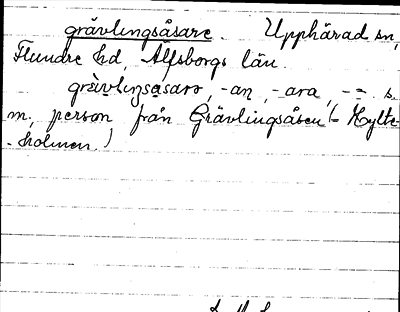 grävlingsåsare. Upphärad sn,
Flundre hd, Älfsborgs län.
grävlingsåsarə, -an, -ara, -- s.
m. person från Grävlingsåsen (- Hylte-
-holmen.)